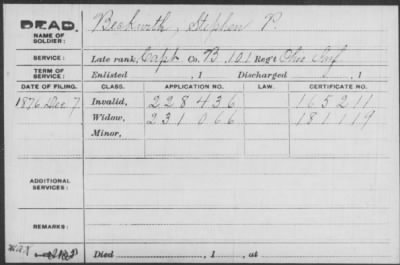 DEAD.
NAME OF SOLDIER: Beckwith, Stephen P.
SERVICE: Late rank, Capt Co. B, 101 Reg't Ohio Inf
TERM OF SERVICE: Enlisted , 1 Discharged , 1
DATE OF FILING. CLASS. APPLICATION NO. LAW. CERTIFICATE NO.
1876 Dec. 7 Invalid, 228436 165211
Widow, 231066 181119
Minor,
ADDITIONAL SERVICES:
REMARKS:
Died , 1 , at